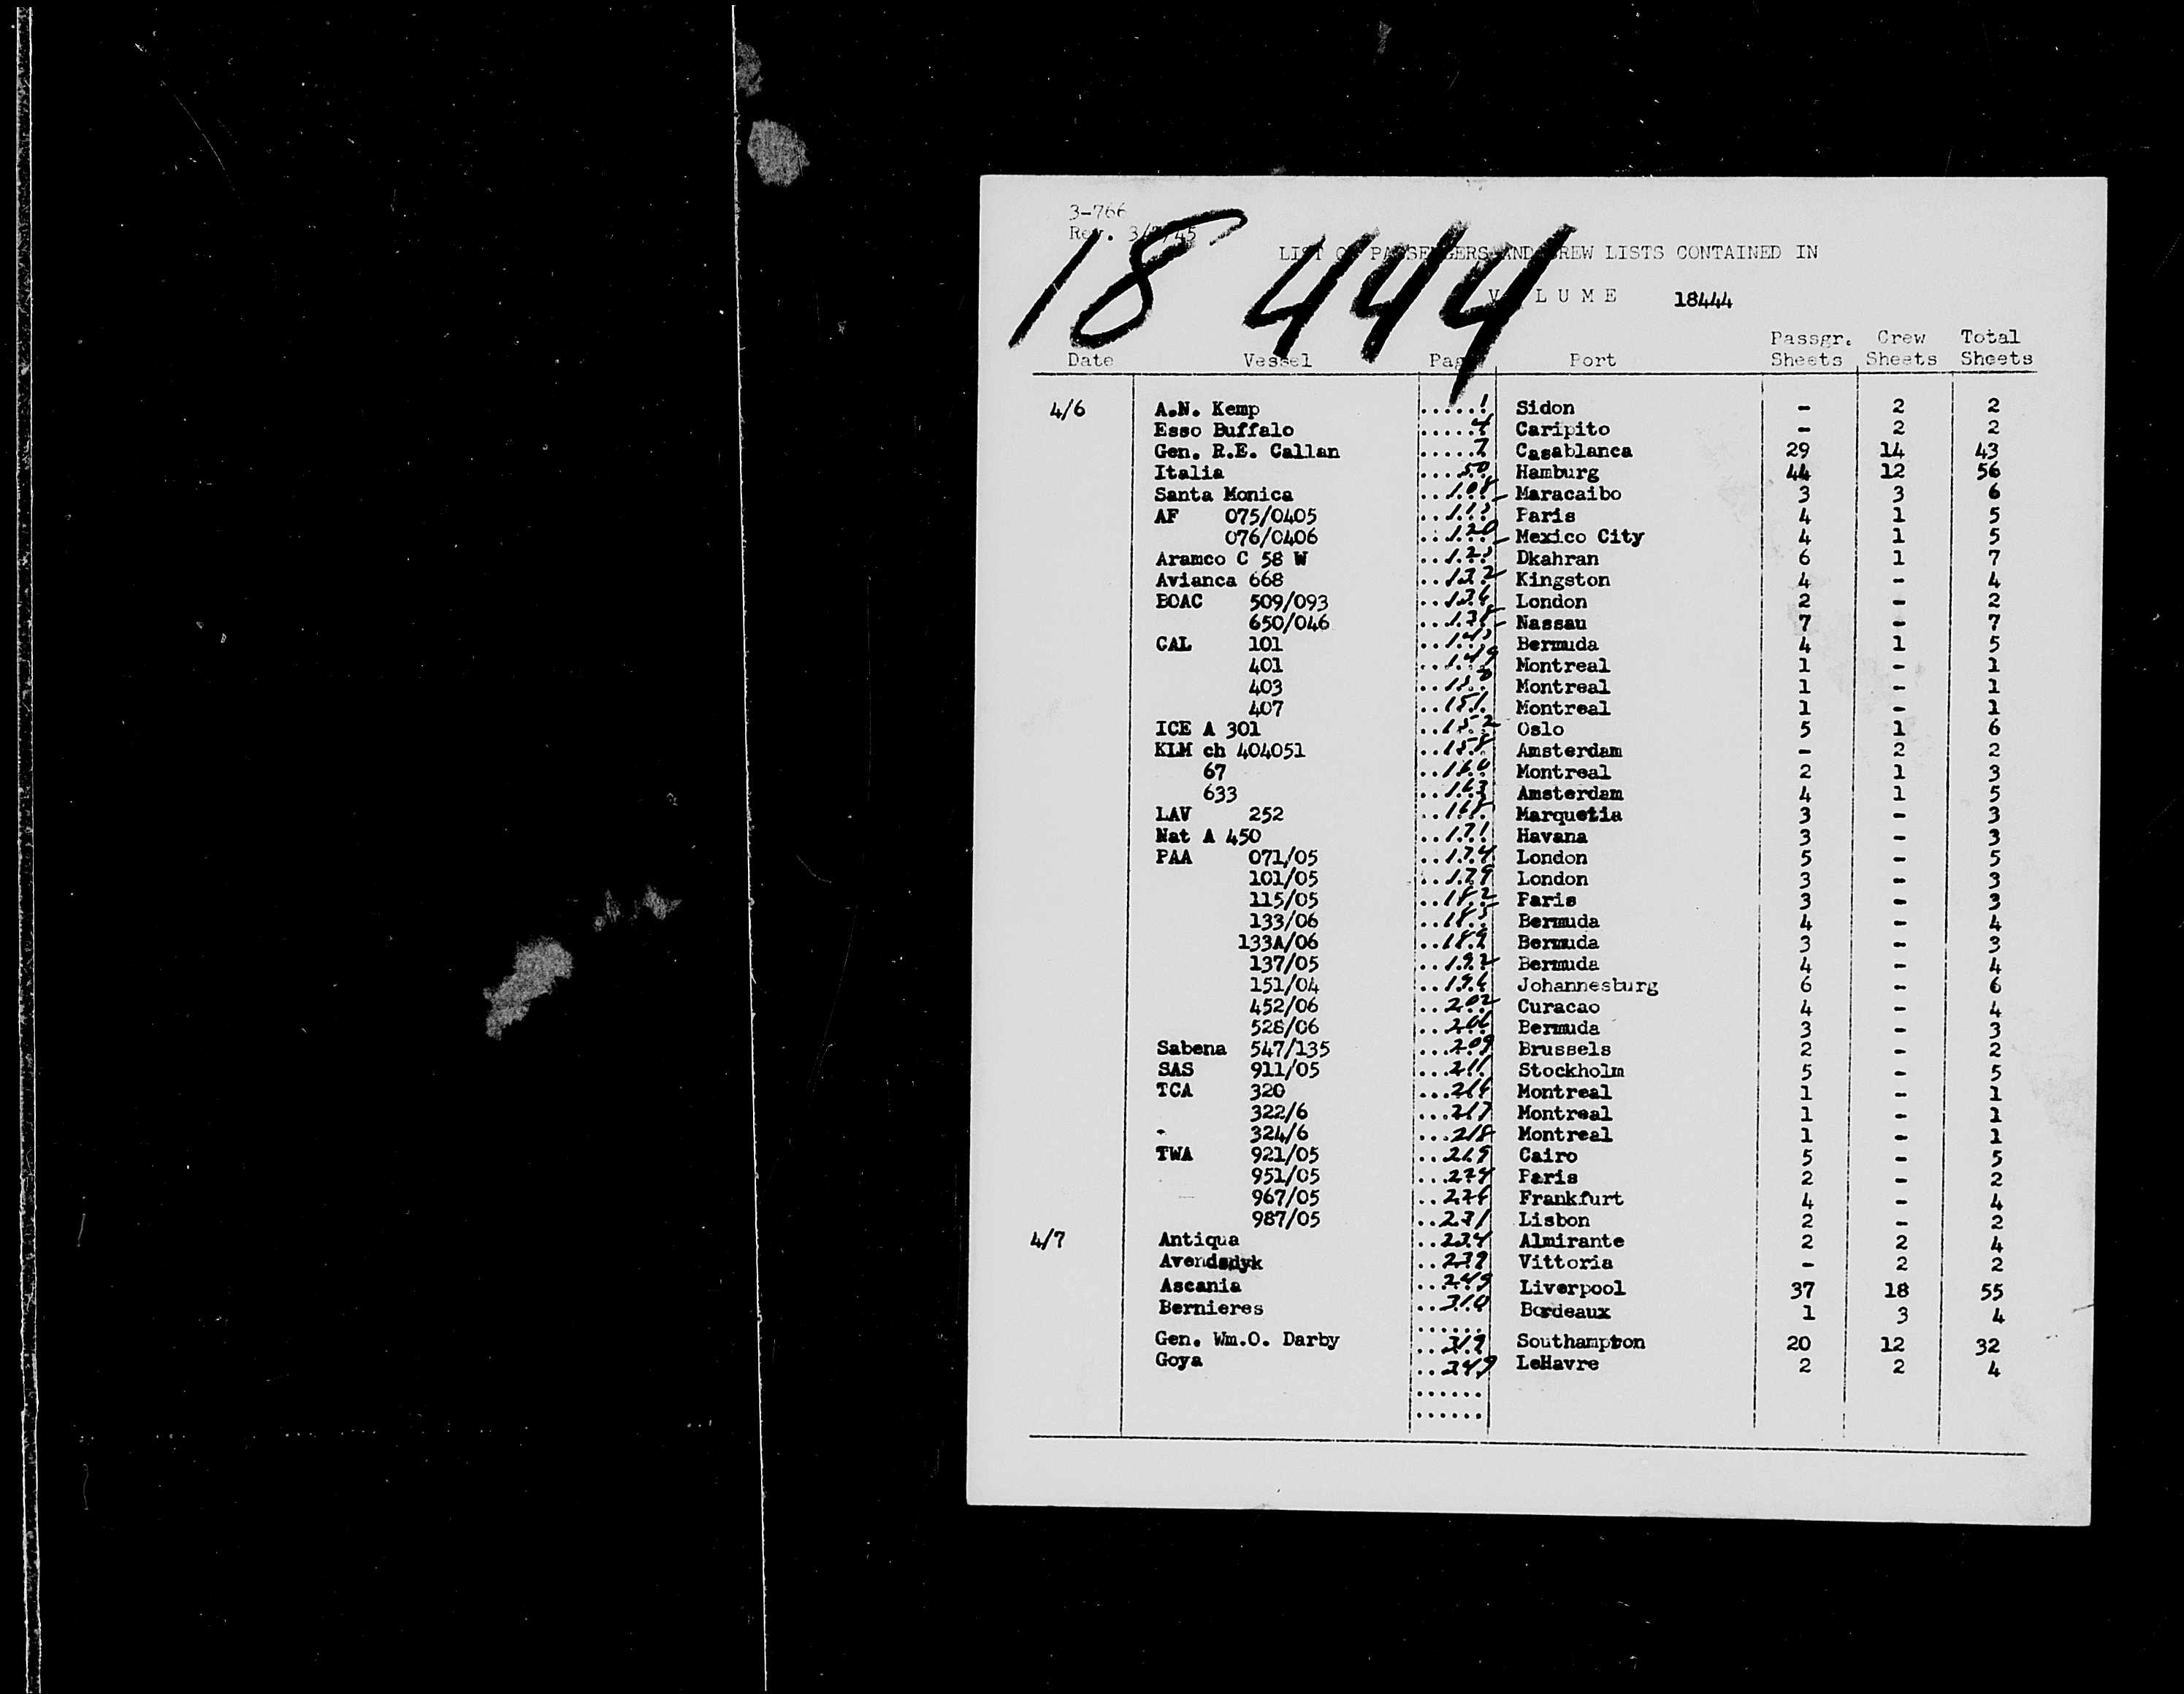 3-766
Rev. 3/7/45
18 444
LIST OF PASSENGERS AND CREW LISTS CONTAINED IN
VOLUME 18444
Passgr. Crew Total
Date Vessel Page Port Sheets Sheets Sheets
4/6 A.N. Kemp ......1 Sidon - 2 2
Esso Buffalo .....4 Caripito - 2 2
Gen. R.E. Callan .....7 Casablanca 29 14 43
Italia ....50 Hamburg 44 12 56
Santa Monica ...108 Maracaibo 3 3 6
AF 075/0405 ...113 Paris 4 1 5
076/0406 ...120 Mexico City 4 1 5
Aramco C 58 W ...125 Dkahran 6 1 7
Avianca 668 ...132 Kingston 4 - 4
BOAC 509/093 ...136 London 2 - 2
650/046 ...138 Nassau 7 - 7
CAL 101 ...145 Bermuda 4 1 5
401 ...149 Montreal 1 - 1
403 ...150 Montreal 1 - 1
407 ...151 Montreal 1 - 1
ICE A 301 ...152 Oslo 5 1 6
KLM ch 404051 ...158 Amsterdam - 2 2
67 ...160 Montreal 2 1 3
633 ...163 Amsterdam 4 1 5
LAV 252 ...168 Marquetia 3 - 3
Nat A 450 ...171 Havana 3 - 3
PAA 071/05 ...174 London 5 - 5
101/05 ...179 London 3 - 3
115/05 ...182 Paris 3 - 3
133/06 ...185 Bermuda 4 - 4
133A/06 ...189 Bermuda 3 - 3
137/05 ...192 Bermuda 4 - 4
151/04 ...196 Johannesburg 6 - 6
452/06 ...202 Curacao 4 - 4
528/06 ...206 Bermuda 3 - 3
Sabena 547/135 ...209 Brussels 2 - 2
SAS 911/05 ...211 Stockholm 5 - 5
TCA 320 ...216 Montreal 1 - 1
322/6 ...217 Montreal 1 - 1
324/6 ...218 Montreal 1 - 1
TWA 921/05 ...219 Cairo 5 - 5
951/05 ...224 Paris 2 - 2
967/05 ..226 Frankfurt 4 - 4
987/05 ..231 Lisbon 2 - 2
4/7 Antiqua ..234 Almirante 2 2 4
Avendsdyk ..239 Vittoria - 2 2
Ascania ..249 Liverpool 37 18 55
Bernieres ..310 Bordeaux 1 3 4
Gen. Wm.O. Darby ..317 Southampton 20 12 32
Goya ..349 LeHavre 2 2 4